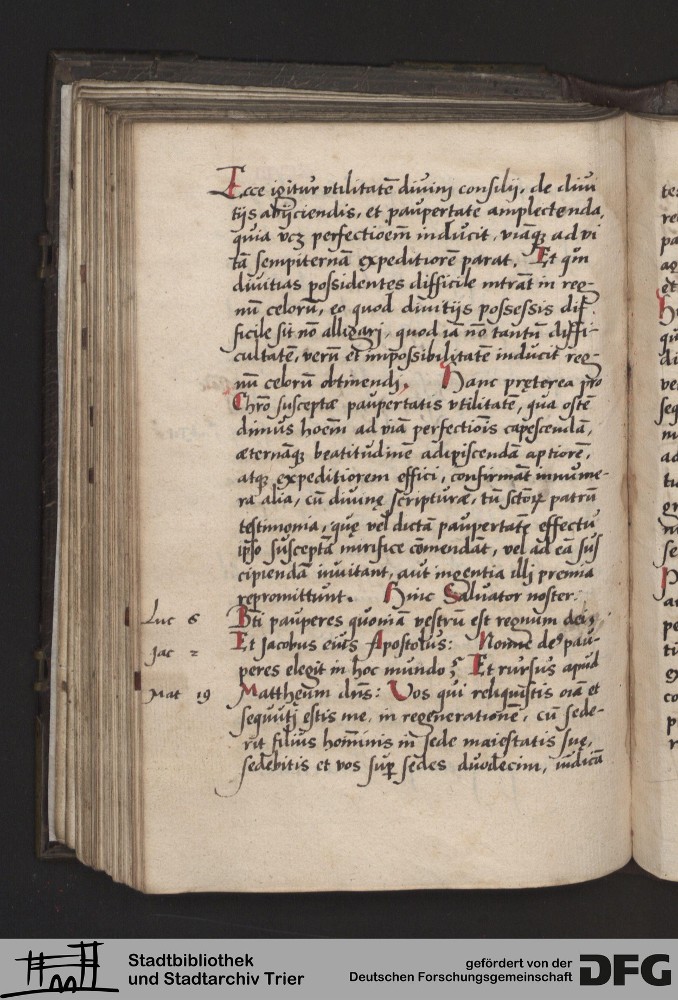 Ecce igitur vtilitatē diuinj consilij, de diui
tijs abijciendis, et paupertate amplectenda,
quia vcꝫ perfectioem̄ inducit, viamqꝫ ad vi
tā sempiternā expeditiorē parat. Et qm̄
diuitias possidentes difficile intrāt in reg-
nū celorū, eo quod diuitijs possessis dif-
ficile sit nō alligarj, quod iā nō tantū diffi-
cultatē, verū et impossibilitatē inducit reg-
nū celorū obtinendj. Hanc pręterea pro
Chrō susceptæ paupertatis vtilitatē, qua ostē
dimus hoēm ad viā perfectiōis capescendā,
æternāqꝫ beatitudinē adipiscendā aptiorē,
atqꝫ expeditiorem effici, confirmāt innume-
ra alia, cū diuinę scripturæ, tū sctōrꝝ patrū
testimonia, quę vel dictā paupertatē effectu
ipso susceptā mirifice cōmendāt, vel ad eā sus
cipiendā inuitant, aut ingentia illj premia
repromittunt. Hinc Saluator noster:
Luc 6 Bti pauperes quoniā vestrū est regnum dei;
Jac 2 Et Jacobus eius Apostolus: Nonne de9 pau-
peres elegit in hoc mundo? Et rursus apud
Mat 19 Matthęum dn̄s: Vos qui reliquistis oīa et
sequutj estis me, in regenerationē, cū sede-
rit filius hominis in sede maiestatis suę,
sedebitis et vos sup sedes duodecim, iudicā
Stadtbibliothek
und Stadtarchiv Trier
gefördert von der
Deutschen Forschungsgemeinschaft
DFG